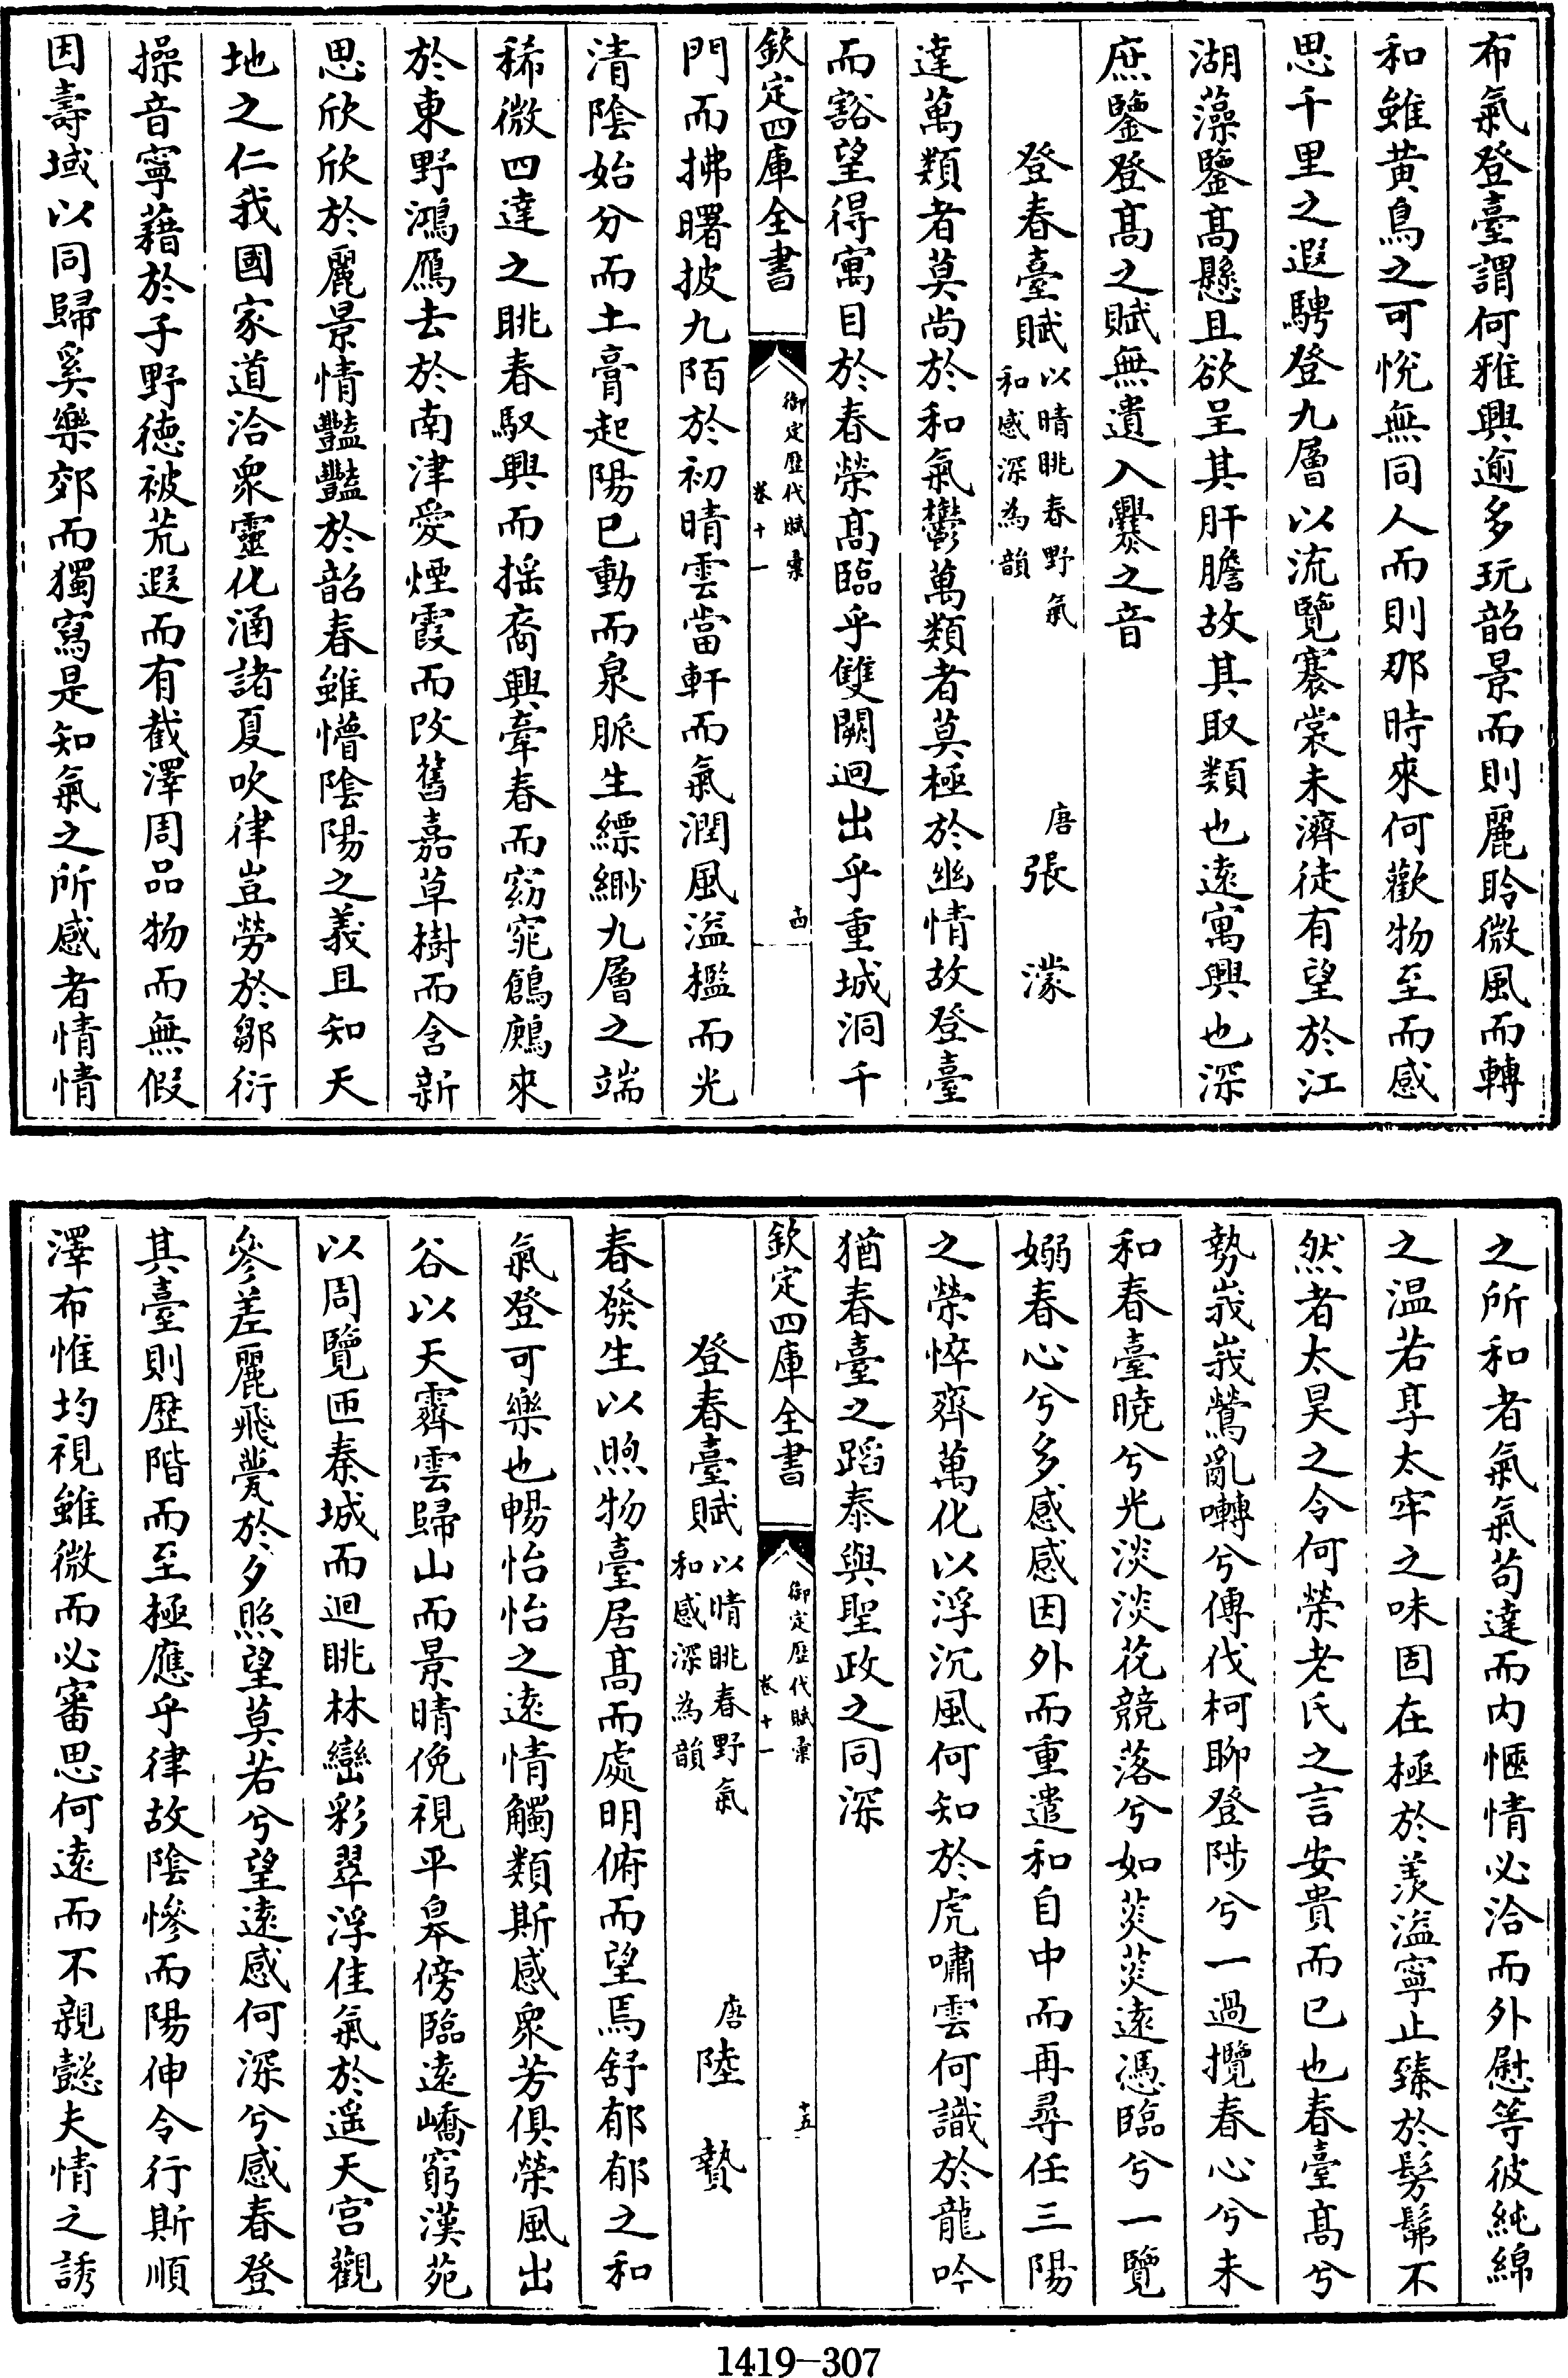 布氣登臺謂何雅興逾多玩韶景而則麗聆微風而轉
和雖黄鳥之可悅無同人而則那時來何歡物至而感
思千里之遐騁登九層以流覽褰裳未濟徒有望於江
湖藻鑒髙懸且欲呈其肝膽故其取類也遠寓興也深
庶鑒登髙之賦無遺入爨之音
登春臺賦 以晴眺春野氣和感深為韻 唐張濛
達萬類者莫尚於和氣鬱萬類者莫極於幽情故登臺
而豁望得寓目於春榮髙臨乎雙闕迥出乎重城洞千
欽定四庫全書 御定歴代賦彙 卷十一 十四
門而拂曙披九陌於初晴雲當軒而氣潤風溢檻而光
清陰始分而土膏起陽已動而泉脈生縹緲九層之端
稀微四達之眺春馭興而揺裔興牽春而窈窕鶬鶊來
於東野鴻鴈去於南津愛煙霞而改舊嘉草樹而含新
思欣欣於麗景情豔豔於韶春雖懵陰陽之義且知天
地之仁我國家道洽衆靈化涵諸夏吹律豈勞於鄒衍
操音寧藉於子野徳被荒遐而有截澤周品物而無假
因壽域以同歸奚樂郊而獨寫是知氣之所感者情情
之所和者氣氣苟達而内愜情必洽而外慰等彼純綿
之温若享太牢之味固在極於羨溢寧止臻於髣髴不
然者太昊之令何榮老氏之言安貴而已也春臺髙兮
勢峩峩鶯亂囀兮傳伐柯聊登陟兮一過攬春心兮未
和春臺曉兮光淡淡花競落兮如菼菼遠憑臨兮一覽
嫋春心兮多感感因外而重遣和自中而再尋任三陽
之榮悴齊萬化以浮沉風何知於虎嘯雲何識於龍吟
猶春臺之蹈泰與聖政之同深
欽定四庫全書 御定歴代賦彙 卷十一 十五
登春臺賦 以情眺春野氣和感深為韻 唐陸贄
春發生以煦物臺居髙而處明俯而望焉舒郁郁之和
氣登可樂也暢怡怡之遠情觸類斯感衆芳俱榮風出
谷以天霽雲歸山而景晴俛視平皋傍臨遠嶠窮漢苑
以周覽匝秦城而迴眺林巒彩翠浮佳氣於遥天宫觀
參差麗飛甍於夕照望莫若兮望遠感何深兮感春登
其臺則歴階而至極應乎律故陰慘而陽伸令行斯順
澤布惟均視雖微而必審思何遠而不親懿夫情之誘
1419-307